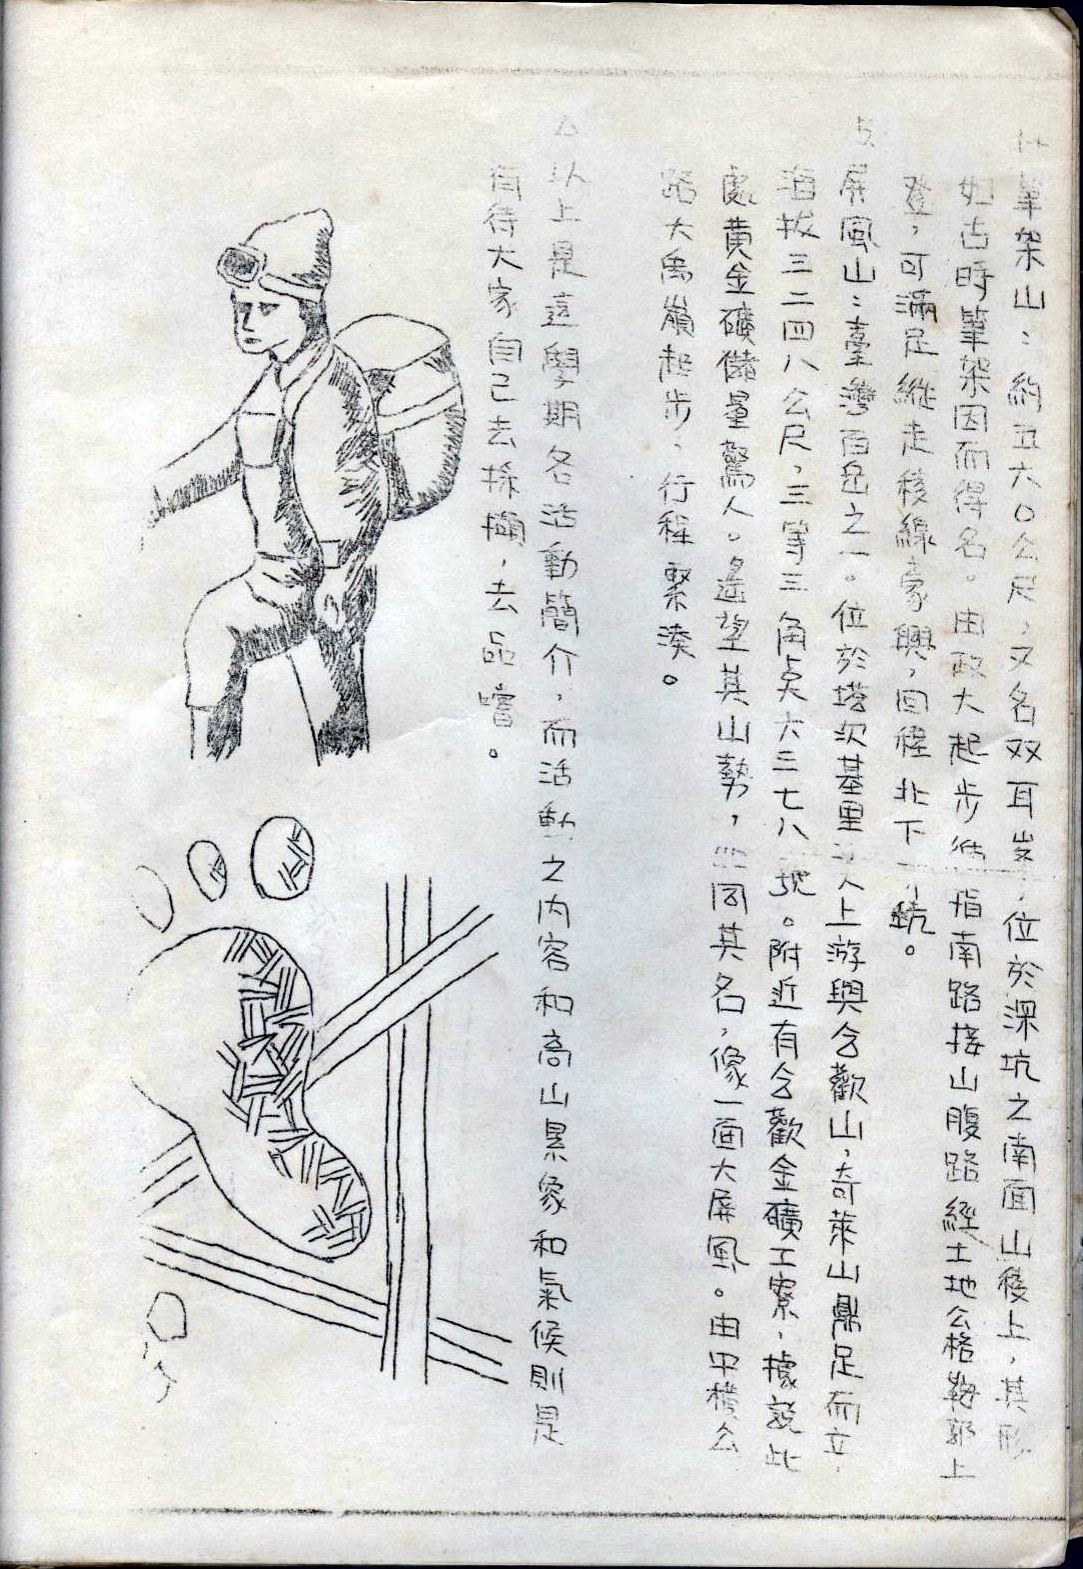 筆架山：約五六〇公尺，又名双耳峯，位於深坑之南面山稜上，其形
如古時筆架因而得名。由政大起步 指南路接山腹路經土地公格 上
登，可滿足縱走稜線豪興，回程北下 坑。
屏風山：臺灣百岳之一。位於塔次基里 上游與合歡山，奇萊山鼎足而立，
海拔三二四八公尺，三等三角点六三七八 。附近有合歡金礦工寮，據說此
處黃金礦儲量驚人。遙望其山勢， 同其名，像一面大屏風。由中橫公
路大禹嶺起步，行程緊湊。
△以上是這學期各活動簡介，而活動之内容和高山景象和氣候則是
有待大家自己去採擷，去品嚐。